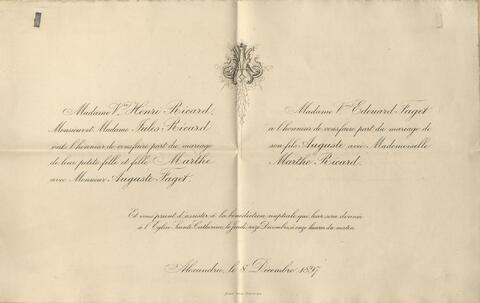 Madame Vve Henri Ricard,
Monsieur et Madame Jules Ricard
ont l'honneur de vous faire part du mariage
de leur petite fille et fille Marthe
avec Monsieur Auguste Faget.
Madame Vve Edouard Faget
a l'honneur de vous faire part du mariage de
son fils Auguste avec Mademoiselle
Marthe Ricard.
Et vous prient d'assister à la bénédiction nuptiale qui leur sera donnée
à l'Eglise Sainte Catherine, le jeudi, seize Décembre, à onze heures du matin.
Alexandrie, le 8 Décembre 1897